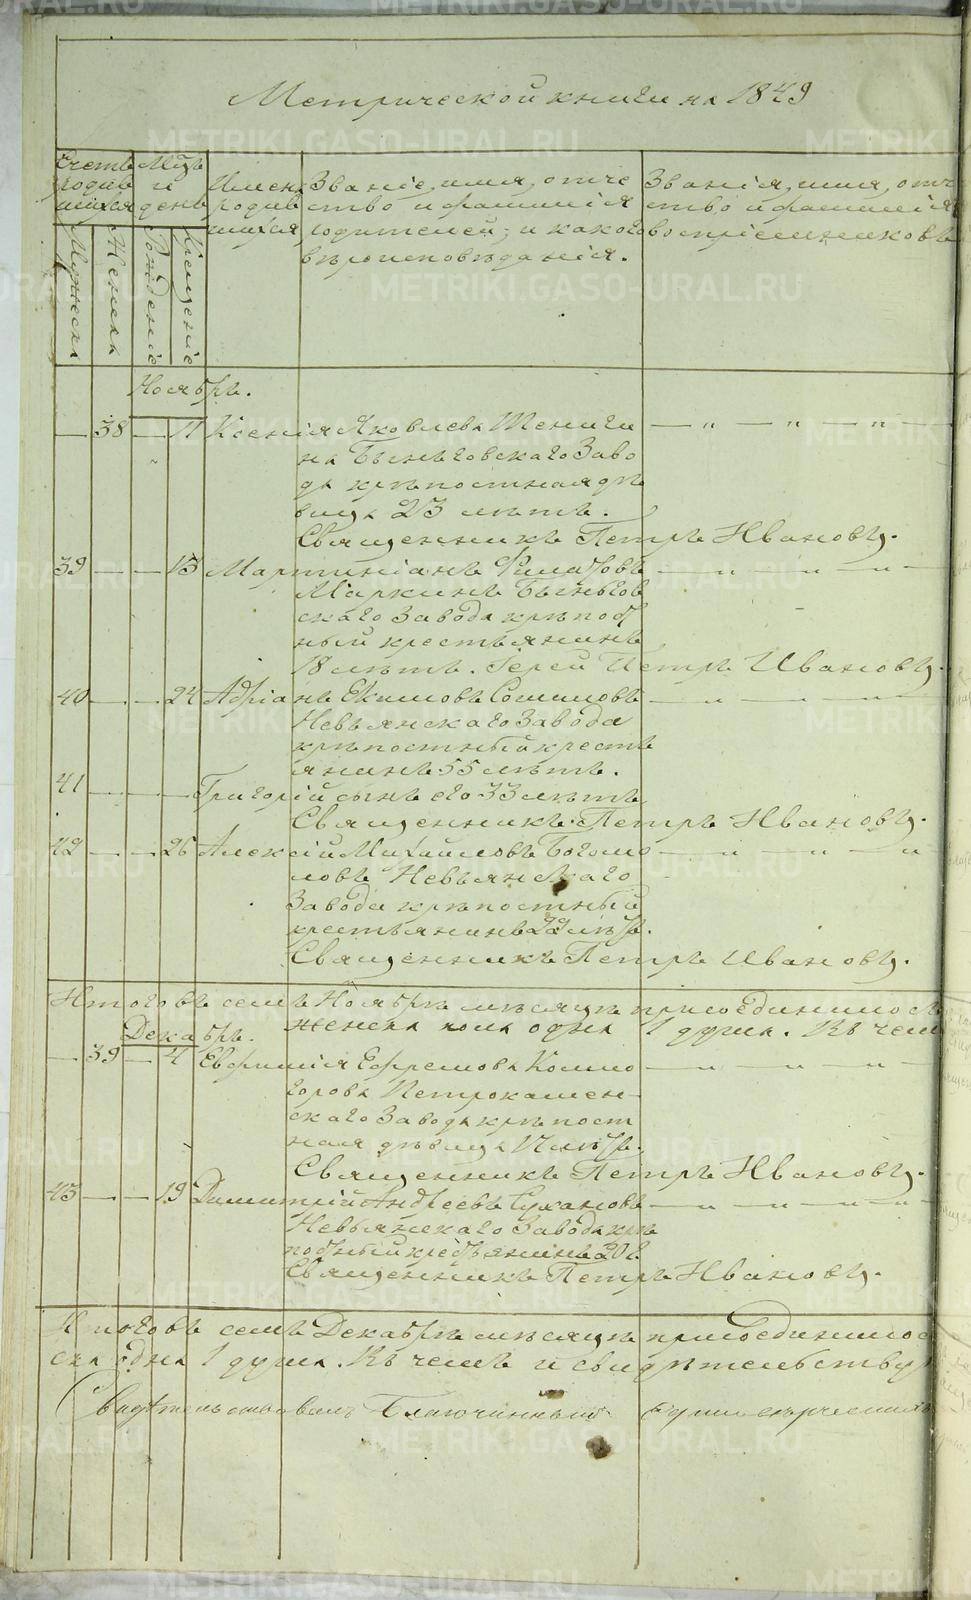 Метрической книги на 1849
Счетъ родившихся
Мужеска
Женска
Мцъ и день
Рождение
Крещение
Имена родившихся
Званіе, имя, отчество и фамилія родителей, и какого вѣроисповѣданія.
Званія, имя, отчество и фамилія воспріемниковъ
Ноябрь.
38 — 11 Ксенія Яковлева
на Быньговскаго Заво
да крѣпостная дѣ
вица 23 лѣтъ.
Священникъ Петръ Ивановъ.
39 — — 13 Мартиніанъ Филатовъ
Маркинъ Быньгов
скаго Завода крѣпос
ный крестьянинъ
18 лѣтъ. Іерей Петръ Ивановъ.
40 — — 24 Адріанъ Екимовъ
Невьянскаго Завода
крѣпостный кресть
янинъ 55 лѣтъ.
41 — — — Григорій сынъ его 33 лѣтъ
Священникъ Петръ Ивановъ.
42 — — 26 Алексій Михайловъ Богомо
ловъ Невьянскаго
Завода крѣпостный
крестьянинъ 22 лѣтъ.
Священникъ Петръ Ивановъ.
Итого въ семъ Ноябрѣ мѣсяцѣ присоединилось
женска пола одна 1 душа. Въ чем
Декабрь.
— 39 — 4 Евфимія Ефремова Колмо
горова Петрокамен-
скаго Завода крѣпост
ная дѣвица лѣтъ.
Священникъ Петръ Ивановъ.
43 — — 19 Димитрій Андреевъ Сухановъ
Невьянскаго Завода крѣ
постный крестьянинъ 20 л.
Священникъ Петръ Ивановъ.
Итого въ семъ Декабрѣ мѣсяцѣ присоединилос
ска одна 1 душа. Въ чемъ и свидѣтельству
Свидѣтельствовалъ Благочинный
METRIKI.GASO-URAL.RU